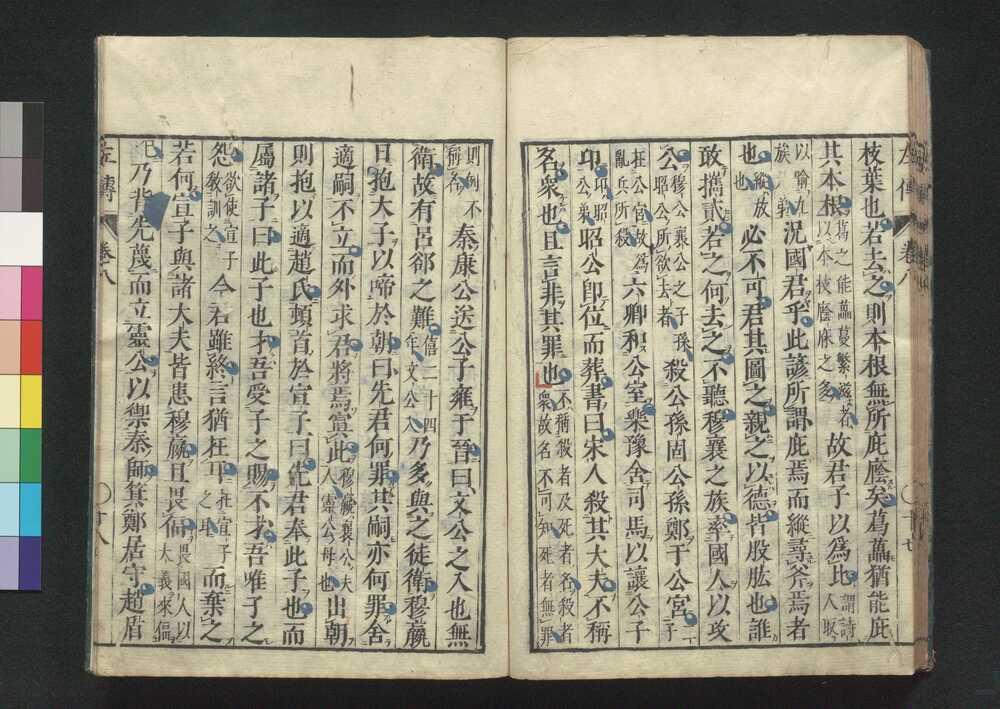 枝葉也若去之則本根無所庇廕矣葛藟猶能庇
其本根葛之能藟蔓繁滋者以本枝廕庥之多故君子以爲比謂詩人取
以喻九族兄弟況國君乎此諺所謂庇焉而縱尋斧焉者
也縱放也必不可君其圖之親之以德皆股肱也誰
敢攜貳若之何去之不聽穆襄之族率國人以攻
公穆公襄公之子孫昭公所欲去者殺公孫固公孫鄭于公宮二子
在公宮故爲亂兵所殺六卿和公室樂豫舍司馬以讓公子
卬卬昭公弟昭公卽位而葬書曰宋人殺其大夫不稱
名衆也且言非其罪也不稱殺者及死者名殺者衆故名不可知死者無罪
左傳 卷八 十七
則例不稱名秦康公送公子雍于晉曰文公之入也無
衛故有呂郤之難僖二十四年文公入乃多與之徒衛穆嬴
日抱大子以啼於朝曰先君何罪其嗣亦何罪舍
適嗣不立而外求君將焉寘此穆嬴襄公夫人靈公母也出朝
則抱以適趙氏頓首於宣子曰先君奉此子也而
屬諸子曰此子也才吾受子之賜不才吾唯子之
怨欲使宣子敎訓之今君雖終言猶在耳在宣子之耳而棄之
若何宣子與諸大夫皆患穆嬴且畏偪畏國人以大義來偪
己乃背先蔑而立靈公以禦秦師箕鄭居守趙盾
左傳 卷八 十八